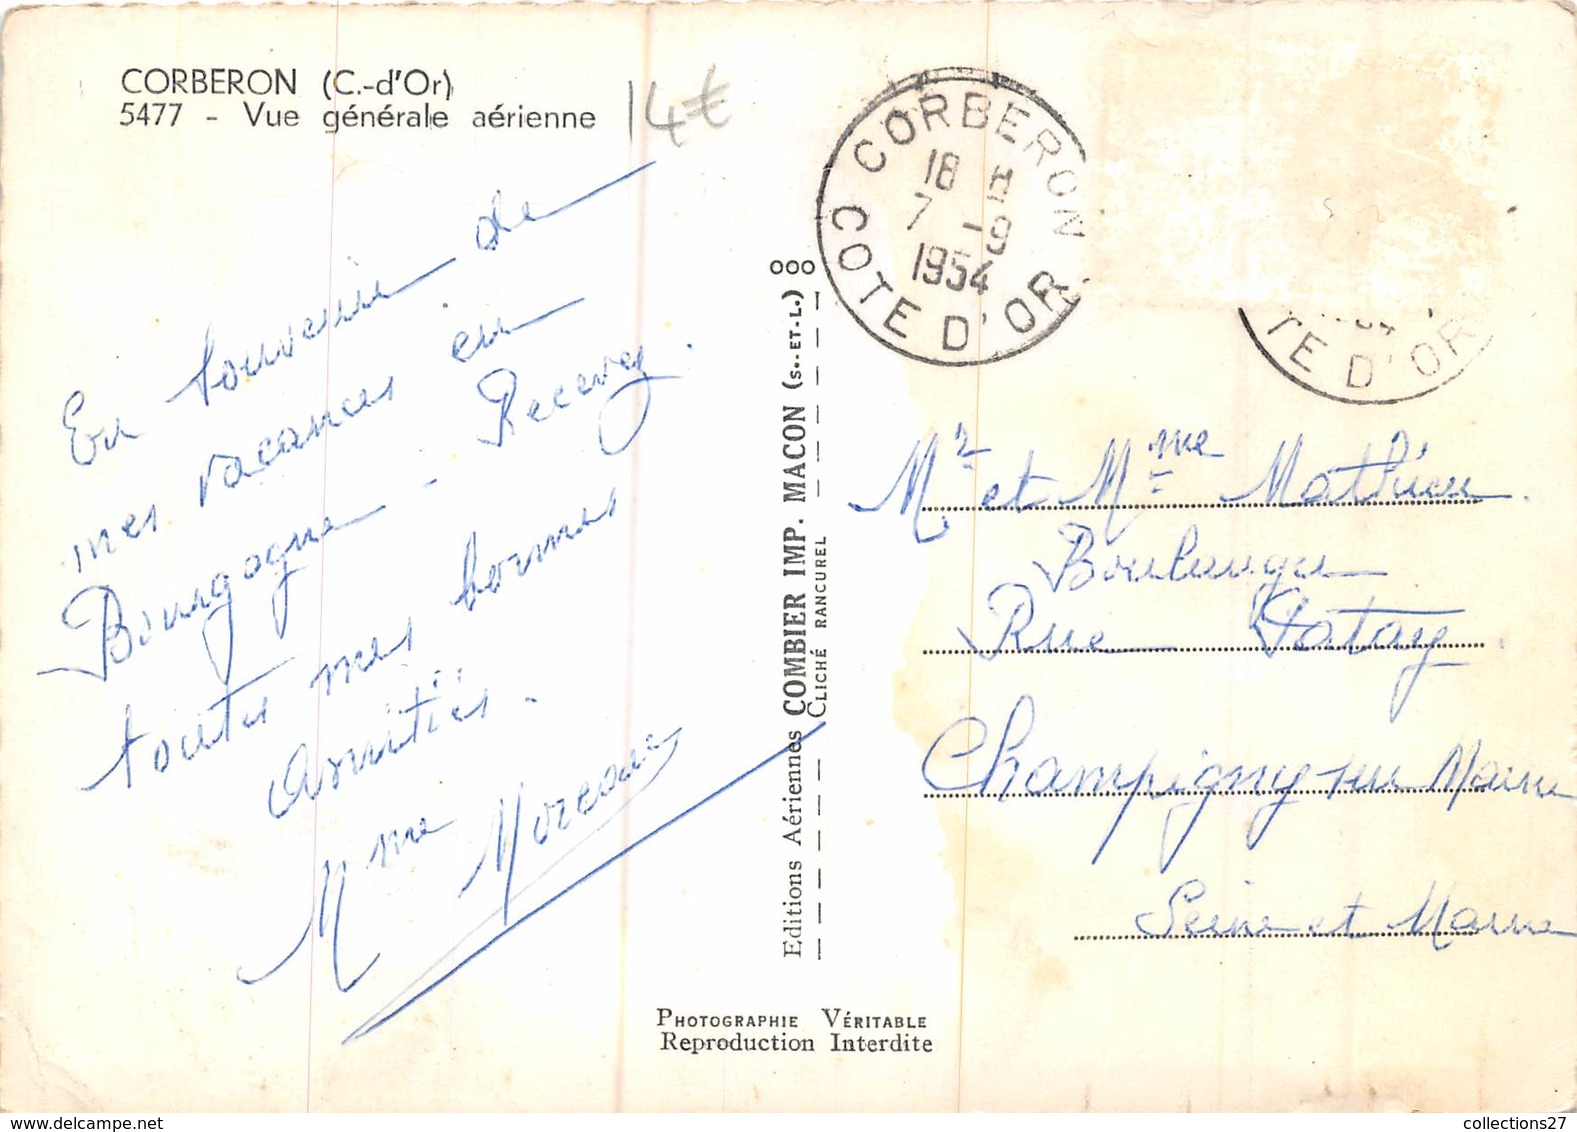 CORBERON (C.-d'Or)
5477 - Vue générale aérienne
14€
En souvenir de
mes vacances en
Bourgogne - Recevez
toutes mes bonnes
Amitiés.
Mme Moreau
OOO
Editions Aériennes COMBIER IMP. MACON (S.-ET-L.)
CLICHÉ RANCUREL
PHOTOGRAPHIE VÉRITABLE
Reproduction Interdite
CORBERON
18 H
7 -9
1954
COTE D'OR
TE D'OR
Mr et Mme Mathieu
Boulanger
Rue Patay
Champigny sur Marne
Seine et Marne
collections27